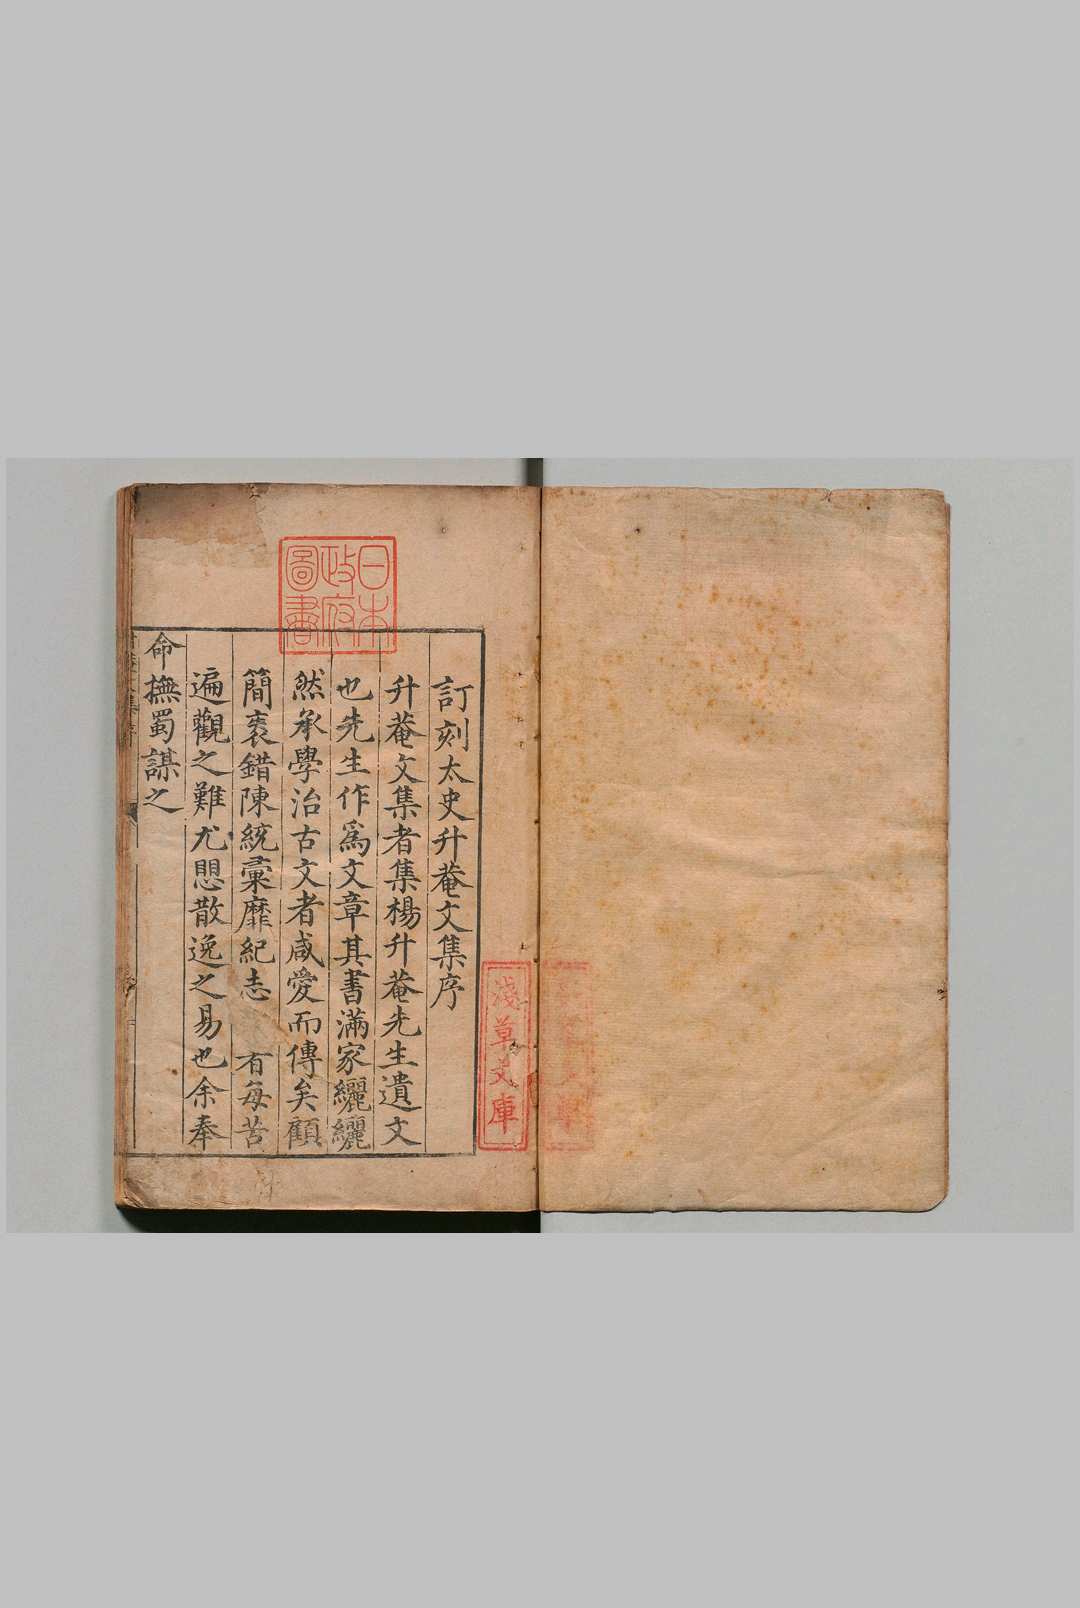 訂刻太史升菴文集序
升菴文集者集楊升菴先生遺文
也先生作爲文章其書滿家纚纚
然承學治古文者咸愛而傳矣顧
簡袠錯陳統彙靡紀志 有每苦
遍觀之難尤愳散逸之易也余奉
命撫蜀謀之
日本
政府
圖書
淺草文庫